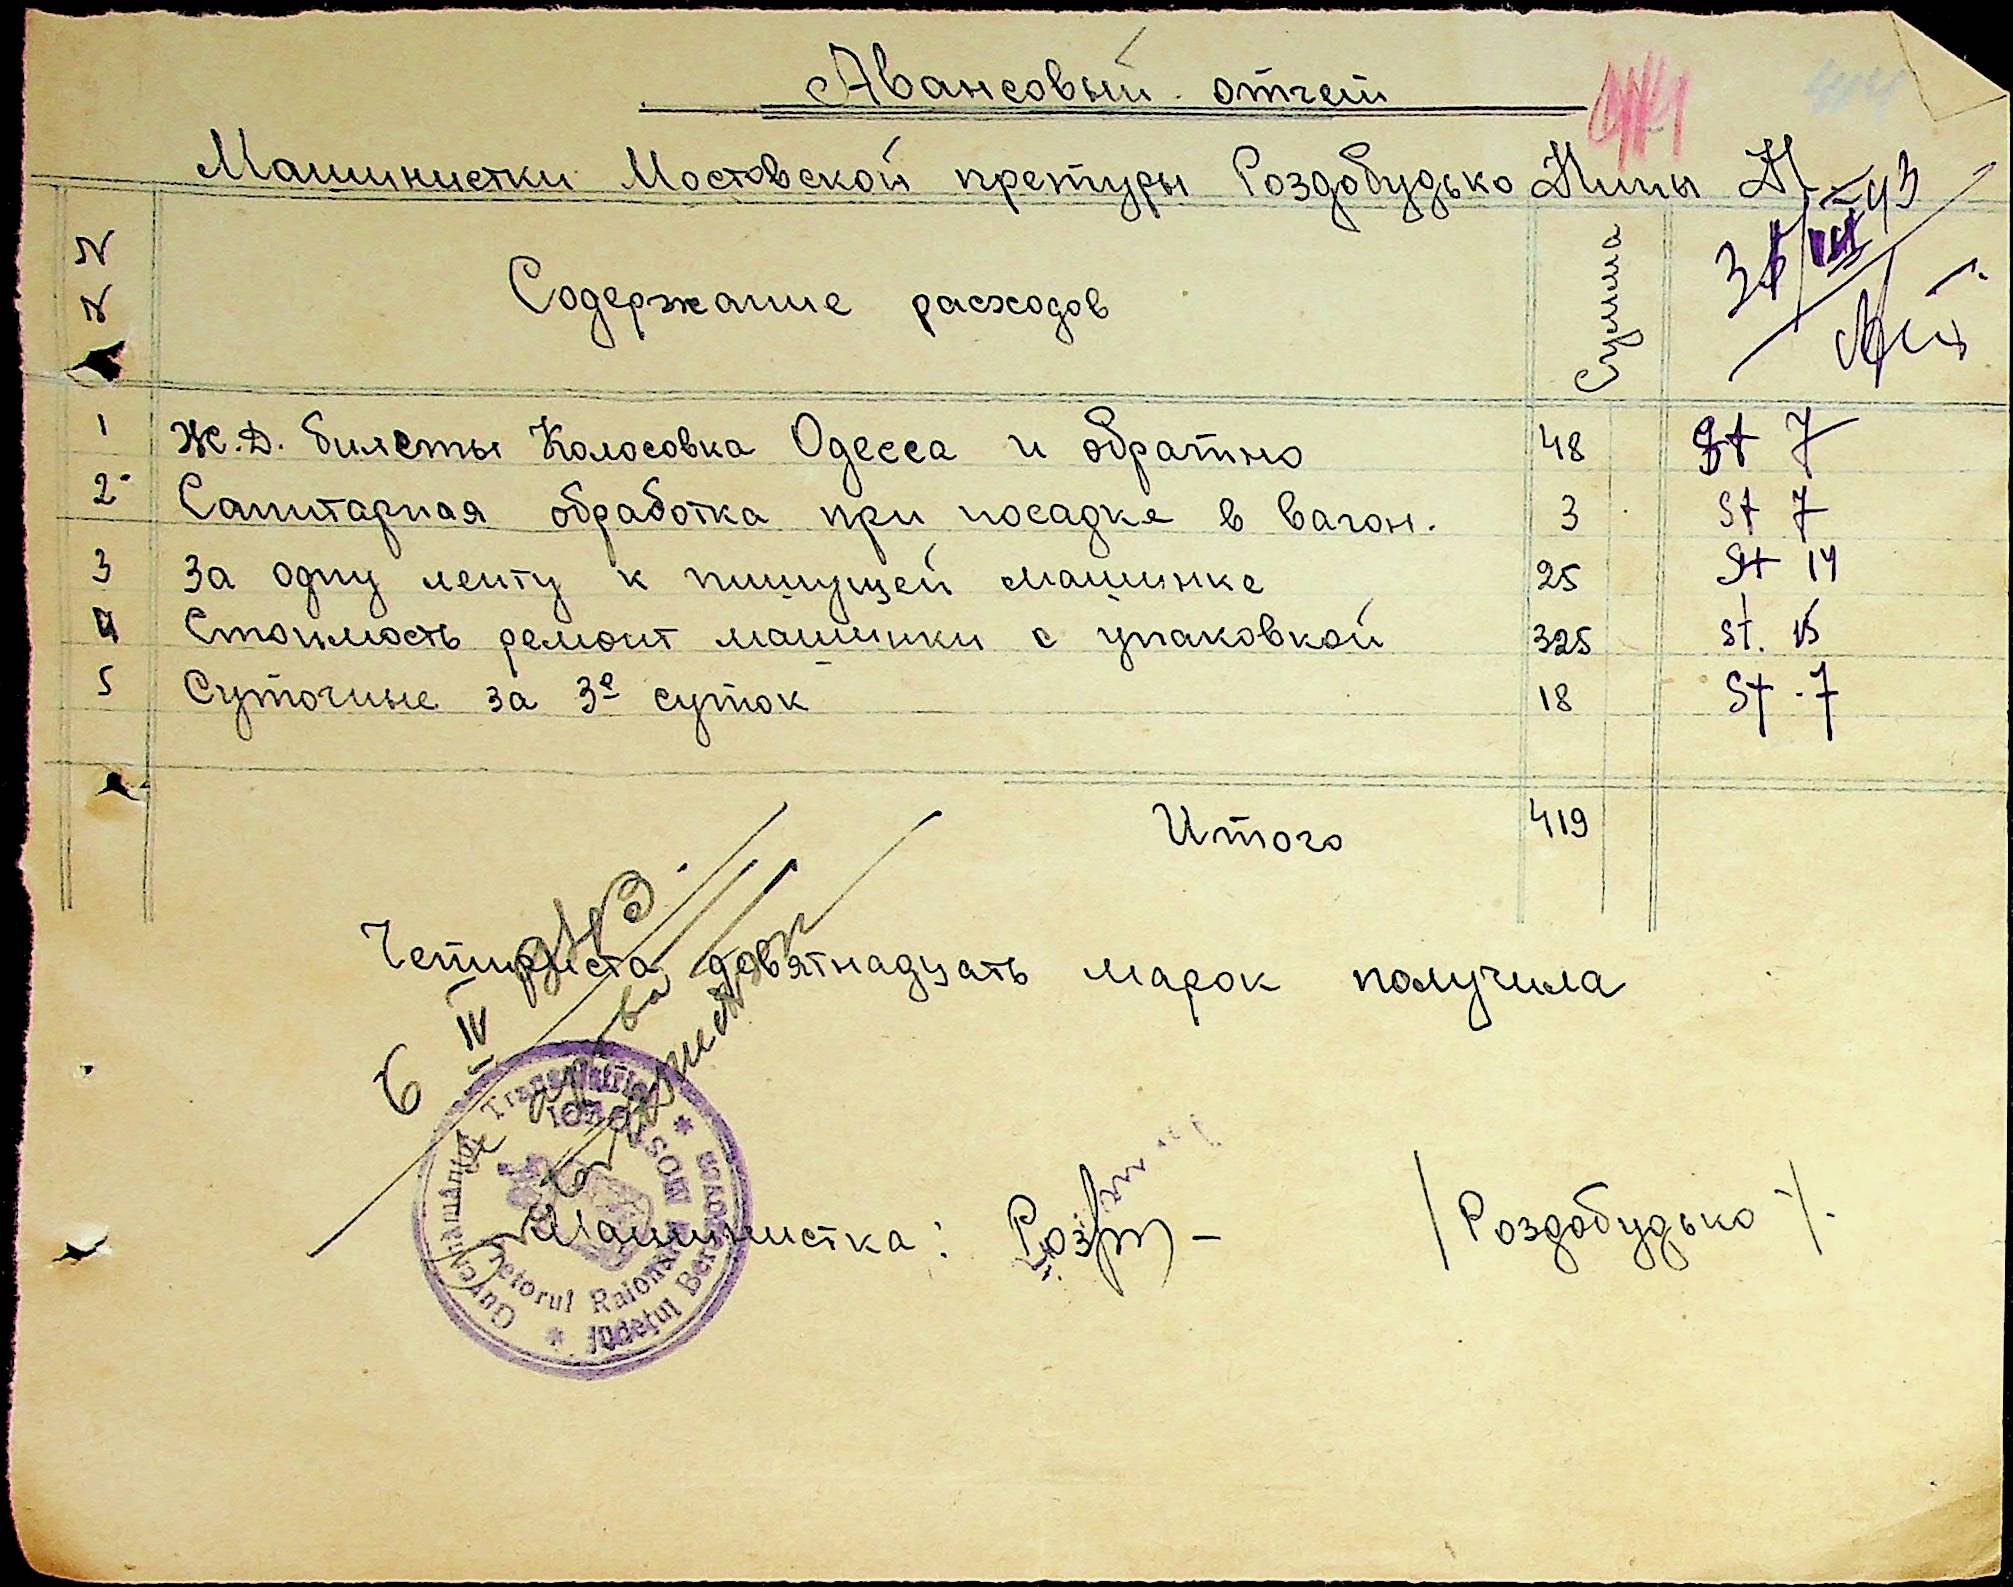 Авансовый отчет
Машинистки Мостовской претуры Роздобудько Нины Н.
N
N
Содержание расходов
Сумма
1 Ж.Д. билеты Колосовка Одесса и обратно 48 St 7
2 Санитарная обработка при посадке в вагон. 3 St 7
3 За одну ленту к пишущей машинке 25 St 14
4 Стоимость ремонт машинки с упаковкой 325 St. 15
5 Суточные за 3е суток 18 St. 7
Итого 419
Четыреста девятнадцать марок получила
6 IV 943
Guvernământul Transnistriei
Pretorul Raionului MOSTOVOI
Județul Berezovca
Машинистка: Роз /Роздобудько/.